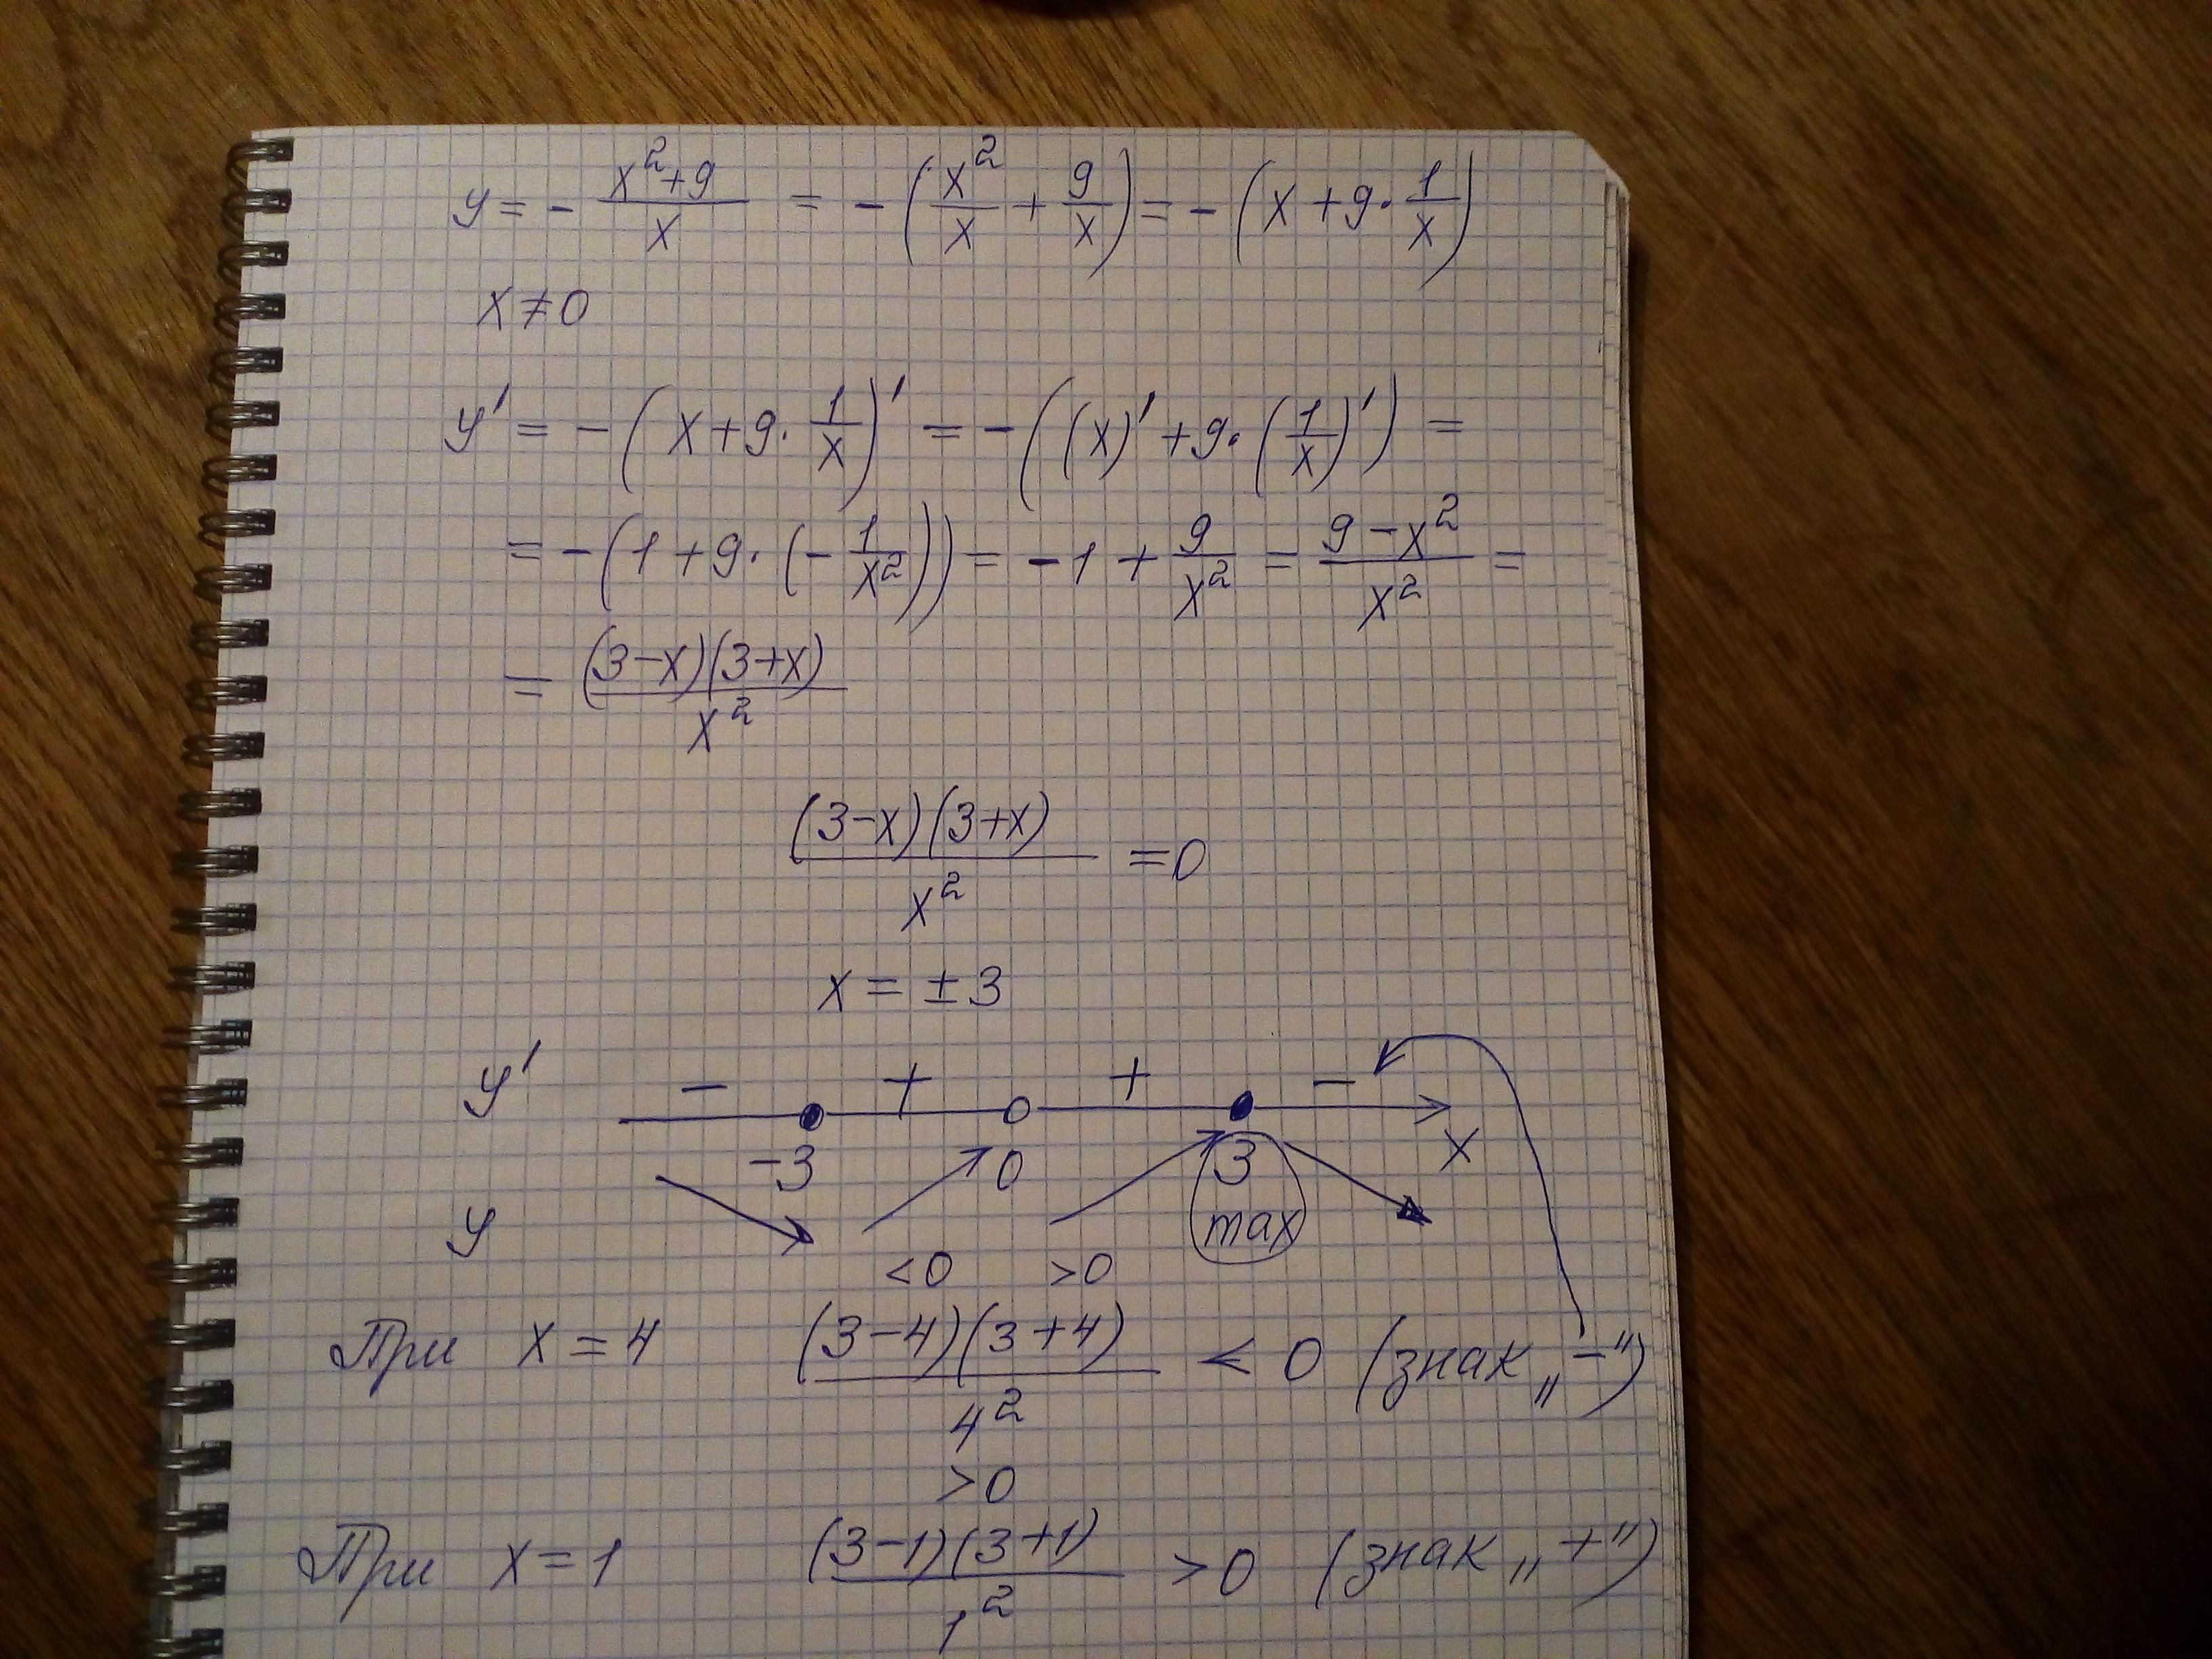 y = - (x²+9)/x = - (x²/x + 9/x) = - (x + 9 · 1/x)
x ≠ 0
y' = - (x + 9 · 1/x)' = - ((x)' + 9 · (1/x)') =
= - (1 + 9 · (- 1/x²)) = - 1 + 9/x² = (9 - x²)/x² =
= (3-x)(3+x)/x²
(3-x)(3+x)/x² = 0
x = ± 3
y' - + + -
-3 0 3 x
y max
<0 >0
При x = 4 (3-4)(3+4)/4² < 0 (знак „-")
>0
При x = 1 (3-1)(3+1)/1² > 0 (знак „+")